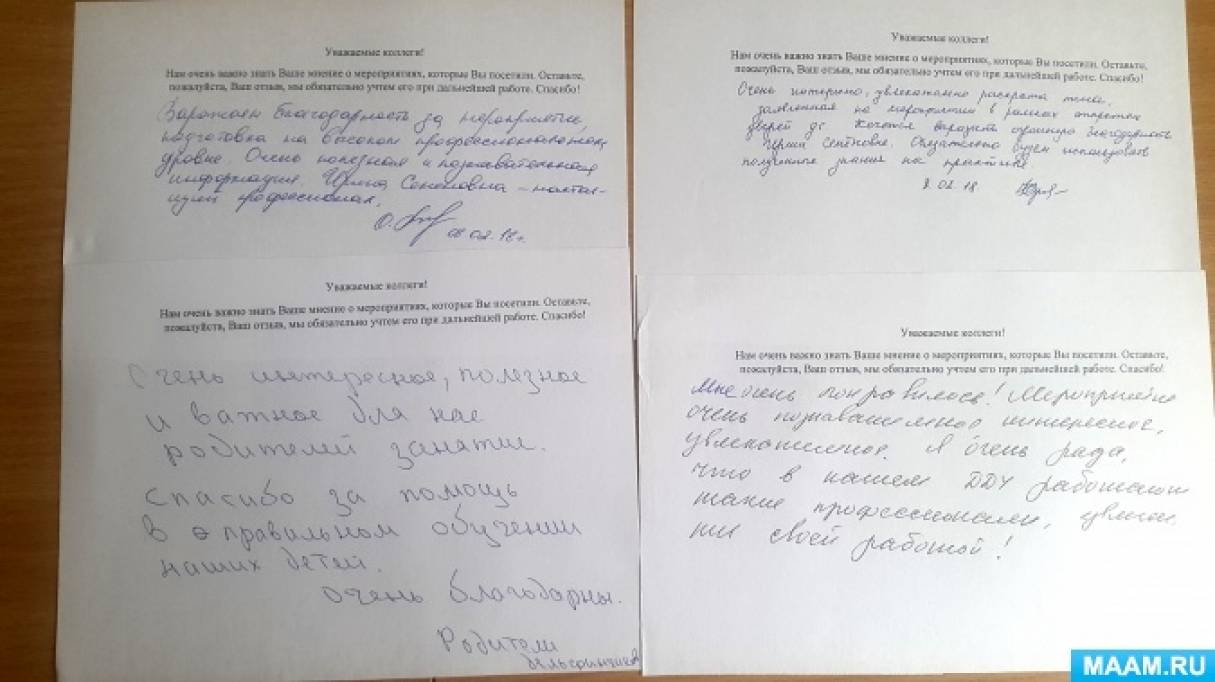 Уважаемые коллеги!
Нам очень важно знать Ваше мнение о мероприятиях, которые Вы посетили. Оставьте,
пожалуйста, Ваш отзыв, мы обязательно учтем его при дальнейшей работе. Спасибо!
благодарность за мероприятие
подготовка на высоком
уровне. Очень полезная и познавательная
информация. Ирина Семеновна – настоя-
щий профессионал.
08.02.18г.
Уважаемые коллеги!
Нам очень важно знать Ваше мнение о мероприятиях, которые Вы посетили. Оставьте,
пожалуйста, Ваш отзыв, мы обязательно учтем его при дальнейшей работе. Спасибо!
Очень интересно, увлекательно раскрыта тема,
заявленная на мероприятии в рамках открытых
дверей ДС. Хочется выразить огромную благодарность
будем использовать
полученные знания на практике
02.18
Уважаемые коллеги!
Нам очень важно знать Ваше мнение о мероприятиях, которые Вы посетили. Оставьте,
пожалуйста, Ваш отзыв, мы обязательно учтем его при дальнейшей работе. Спасибо!
Очень интересное, полезное
и важное для нас
родителей занятие.
Спасибо за помощь
в правильном обучении
наших детей.
Очень благодарны.
Родители
Уважаемые коллеги!
Нам очень важно знать Ваше мнение о мероприятиях, которые Вы посетили. Оставьте,
пожалуйста, Ваш отзыв, мы обязательно учтем его при дальнейшей работе. Спасибо!
Мне очень понравилось! Мероприятие
очень познавательное интересное,
увлекательное. Я очень рада,
что в нашем ДДУ работают
такие профессионалы,
своей работой!
MAAM.RU